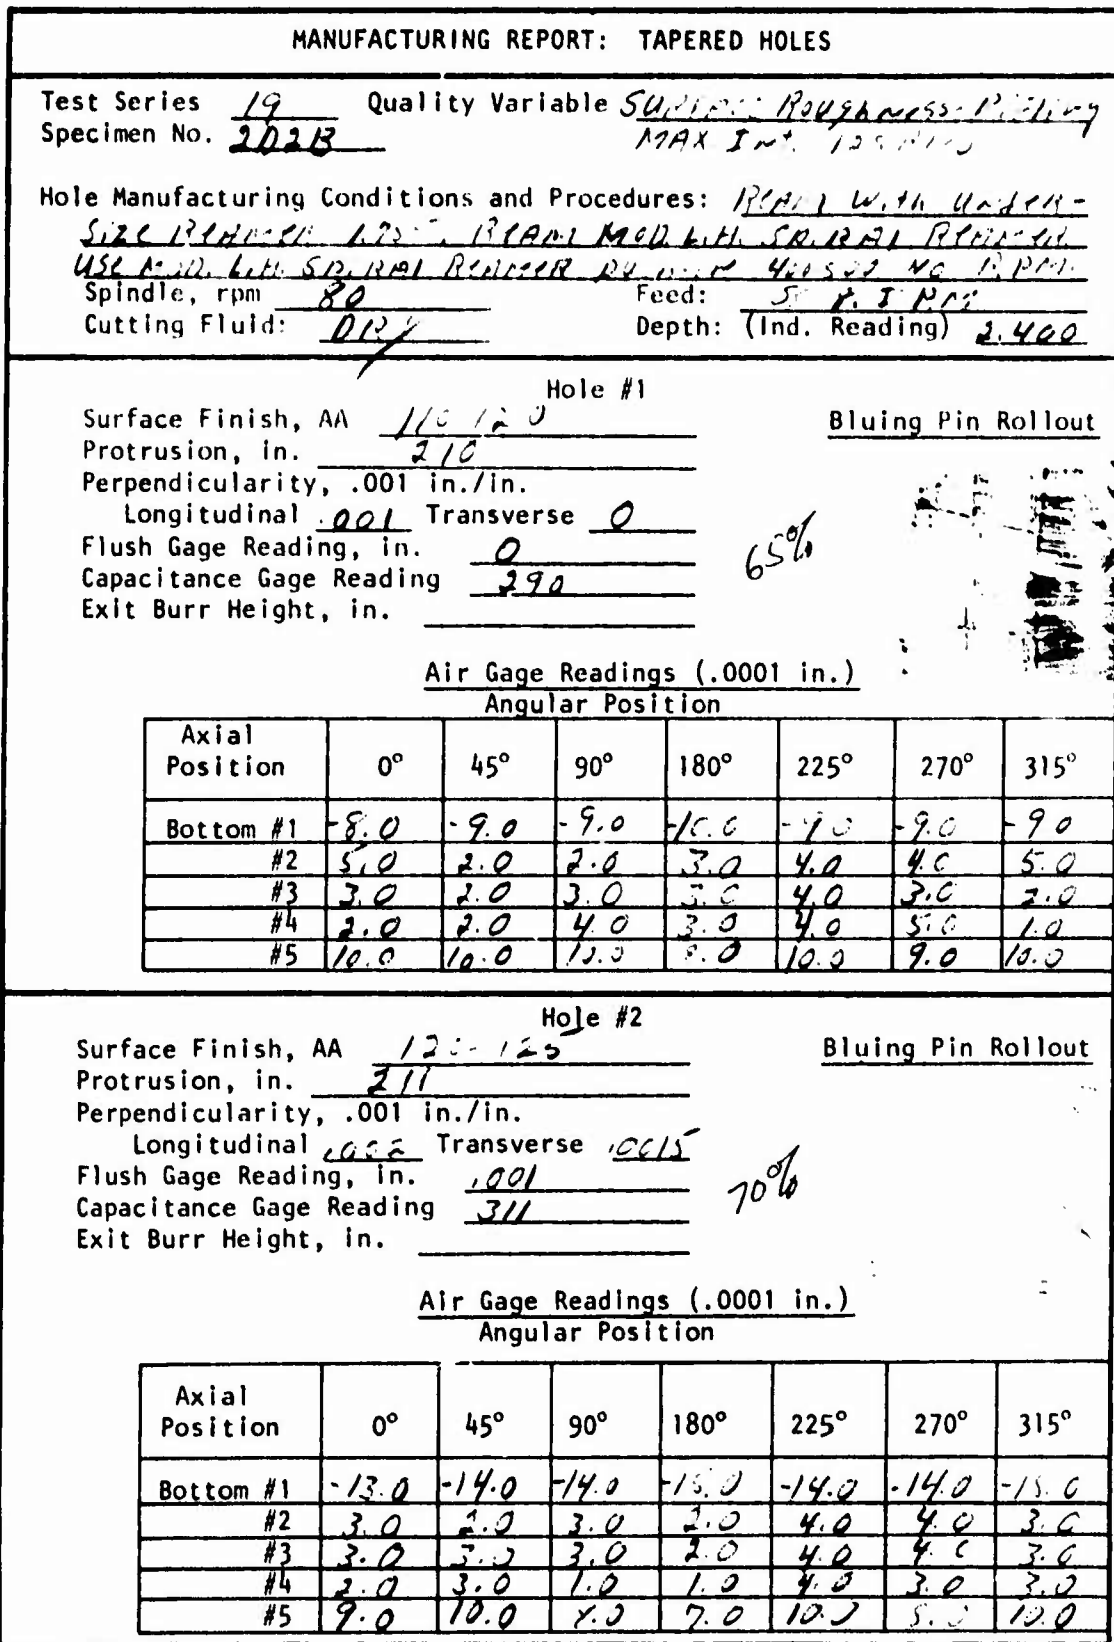 MANUFACTURING REPORT: TAPERED HOLES
Test Series 19 Quality Variable Roughness
Specimen No. 2D2B MAX Int.
Hole Manufacturing Conditions and Procedures: With Under-
Size
USE
Spindle, rpm 80 Feed:
Cutting Fluid: DRY Depth: (Ind. Reading) 2.400
Hole #1
Surface Finish, AA 110 120
Bluing Pin Rollout
Protrusion, in. 210
Perpendicularity, .001 in./in.
Longitudinal .001 Transverse 0
Flush Gage Reading, in. 0
65%
Capacitance Gage Reading 290
Exit Burr Height, in.
Air Gage Readings (.0001 in.)
Angular Position
Axial Position 0° 45° 90° 180° 225° 270° 315°
Bottom #1 -8.0 -9.0 -9.0 -10.0 -9.0 -9.0 -9.0
#2 5.0 2.0 2.0 3.0 4.0 4.0 5.0
#3 3.0 2.0 3.0 4.0 3.0 2.0
#4 2.0 2.0 4.0 3.0 4.0 5.0 1.0
#5 10.0 10.0 10.0 10.0 9.0 10.0
Hole #2
Surface Finish, AA 120-125
Bluing Pin Rollout
Protrusion, in. 211
Perpendicularity, .001 in./in.
Longitudinal Transverse .0015
Flush Gage Reading, in. .001
70%
Capacitance Gage Reading 311
Exit Burr Height, in.
Air Gage Readings (.0001 in.)
Angular Position
Axial Position 0° 45° 90° 180° 225° 270° 315°
Bottom #1 -13.0 -14.0 -14.0 -15.0 -14.0 -14.0 -15.0
#2 3.0 2.0 3.0 2.0 4.0 4.0 3.0
#3 3.0 3.0 3.0 2.0 4.0 4.0 3.0
#4 2.0 3.0 1.0 1.0 4.0 3.0 3.0
#5 9.0 10.0 7.0 10.0 10.0